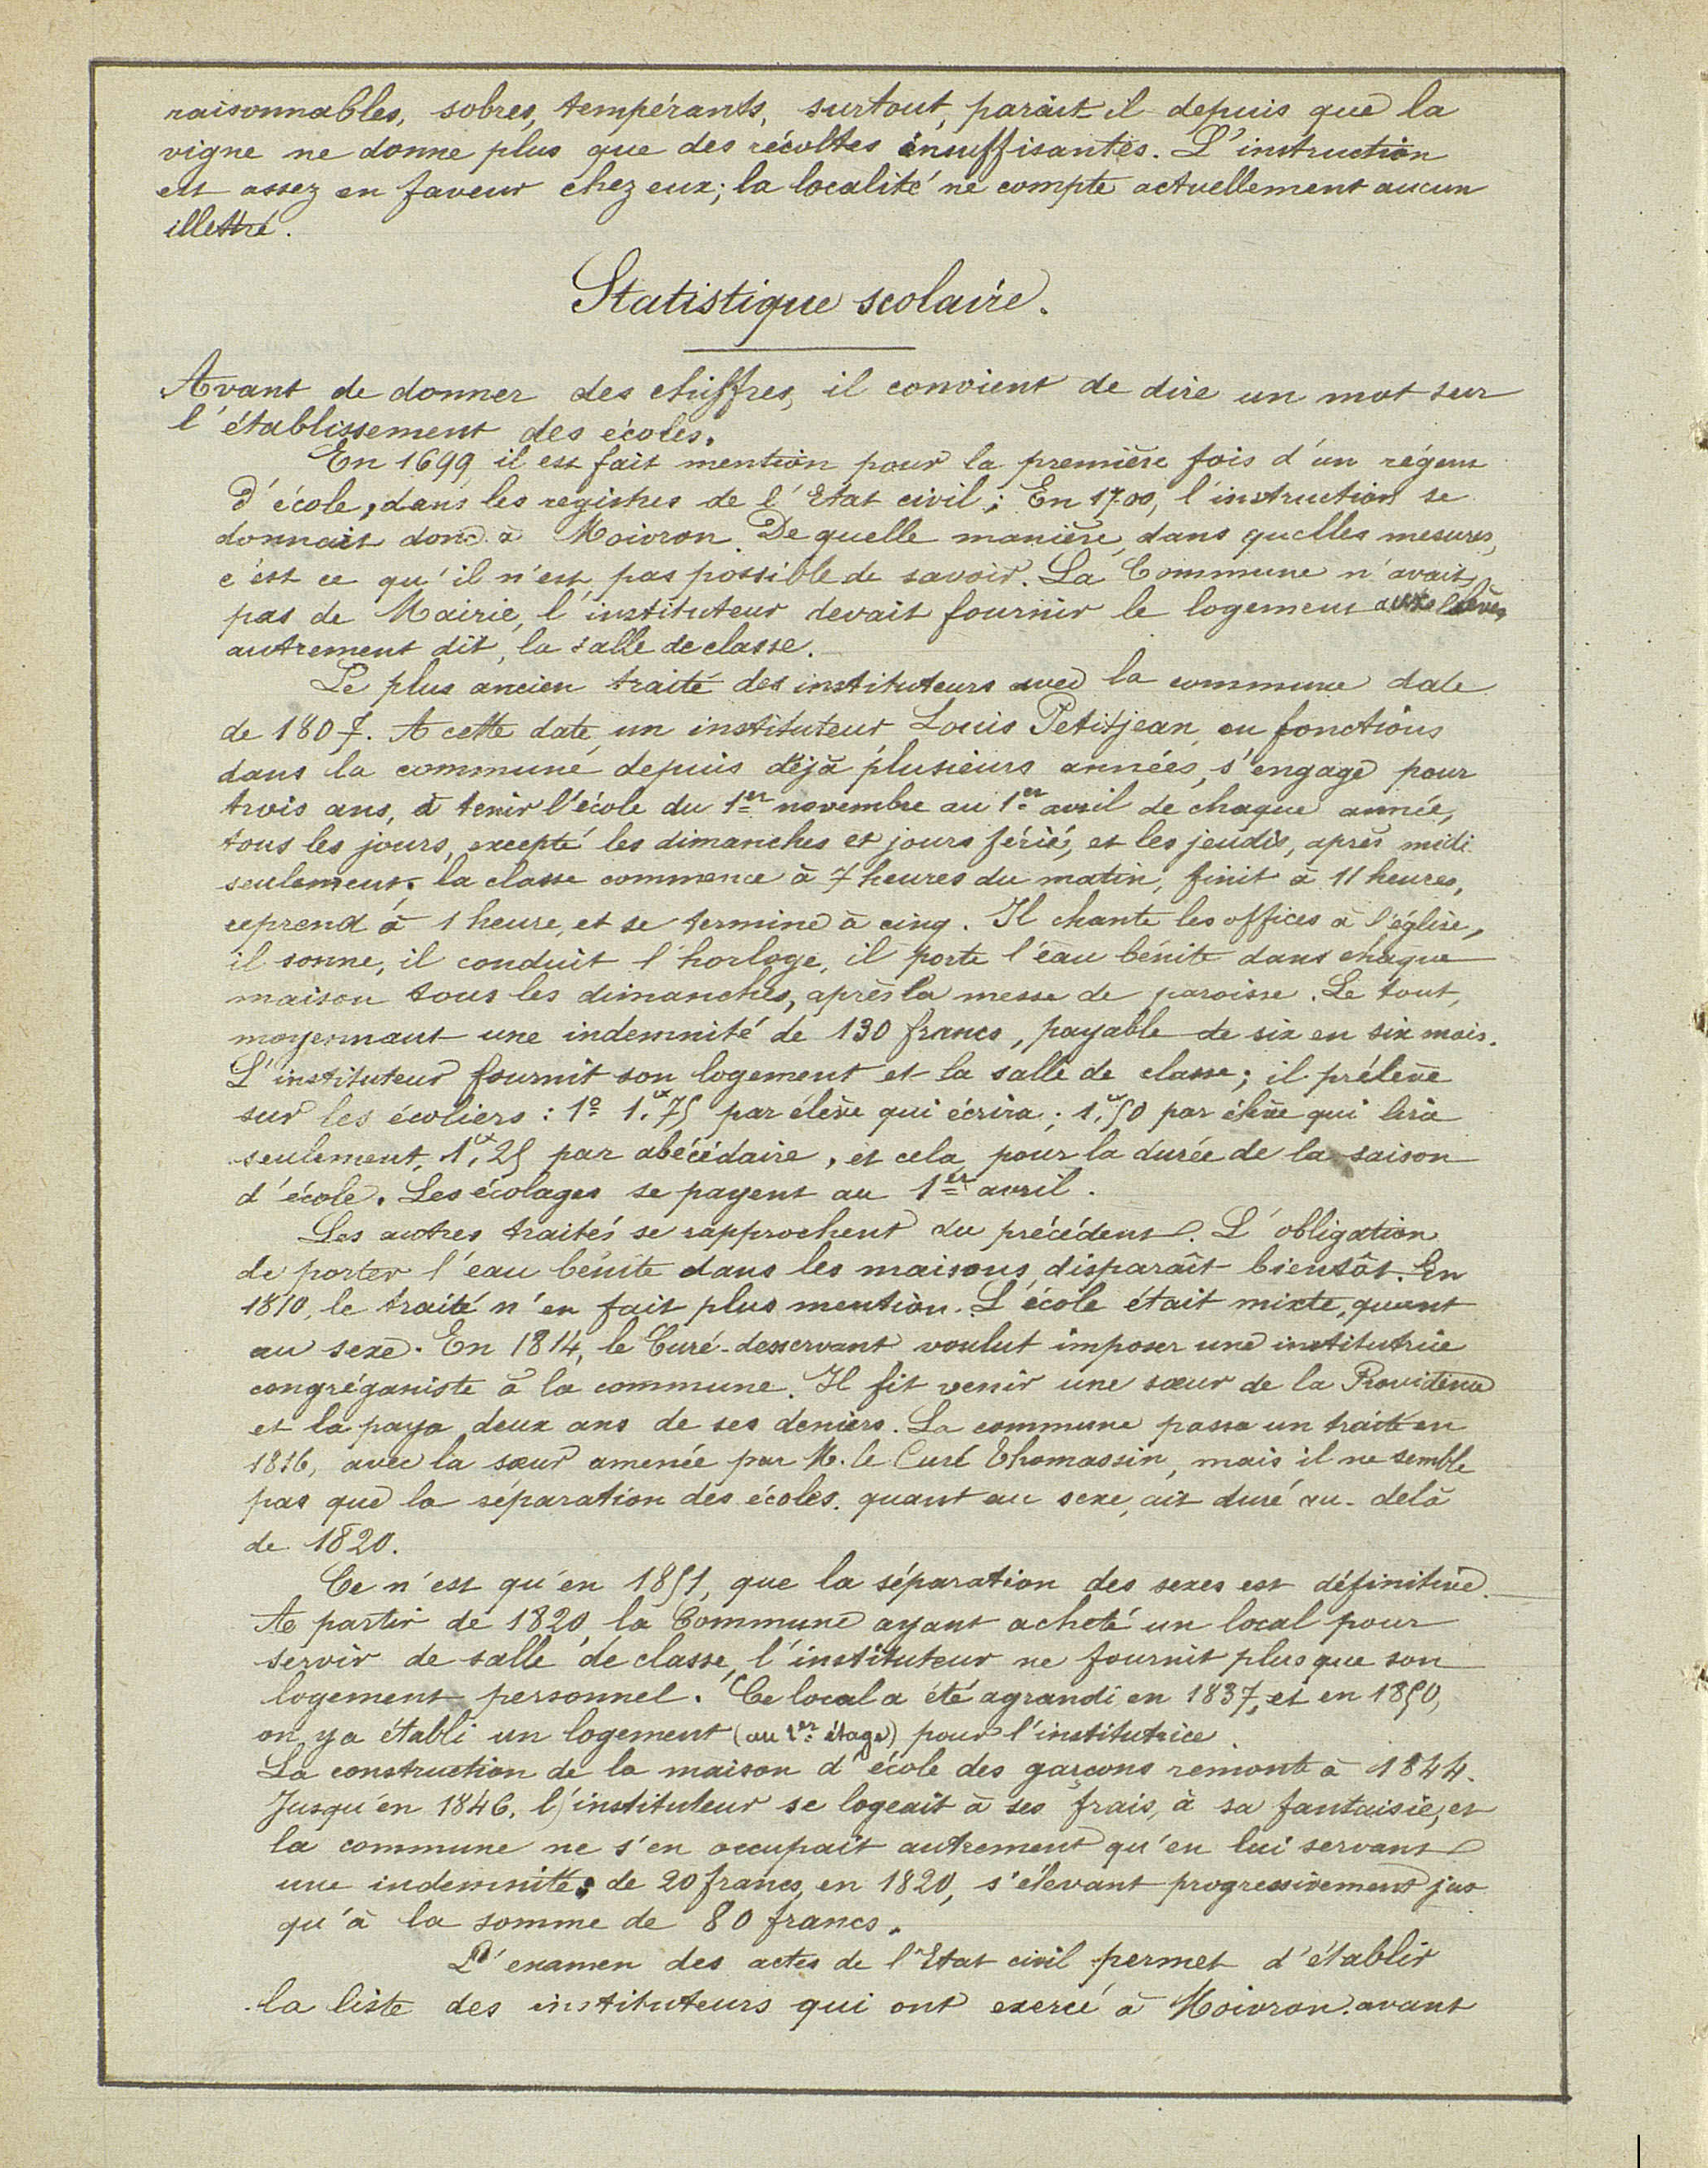 raisonnables, sobres, tempérants, surtout, paraît il depuis que la
vigne ne donne plus que des récoltes insuffisantes. L'instruction
est assez en faveur chez eux; la localité ne compte actuellement aucun
illettré.
Statistique scolaire.
Avant de donner des chiffres, il convient de dire un mot sur
l'établissement des écoles.
En 1699 il est fait mention pour la première fois d'un régent
d'école, dans les registres de l'Etat civil; En 1700, l'instruction se
donnait donc à Moivron. De quelle manière, dans quelles mesures,
c'est ce qu'il n'est pas possible de savoir. La Commune n'avait
pas de Mairie, l'instituteur devait fournir le logement aux élèves
autrement dit, la salle de classe.
Le plus ancien traité des instituteurs avec la commune date
de 1807. A cette date, un instituteur, Louis Petitjean, en fonctions
dans la commune depuis déjà plusieurs années, s'engage pour
trois ans, à tenir l'école du 1er novembre au 1er avril de chaque année,
tous les jours, excepté les dimanches et jours fériés, et les jeudis, après midi
seulement; la classe commence à 7 heures du matin, finit à 11 heures,
reprend à 1 heure, et se termine à cinq. Il chante les offices à l'église,
il sonne, il conduit l'horloge, il porte l'eau bénite dans chaque
maison tous les dimanches, après la messe de paroisse. Le tout,
moyennant une indemnité de 130 francs, payable de six en six mois.
L'instituteur fournit son logement et la salle de classe; il prélève
sur les écoliers : 1º 1,75 par élève qui écrira; 1,50 par élève qui lira
seulement, 1,25 par abécédaire, et cela pour la durée de la saison
d'école. Les écolages se payent au 1er avril.
Les autres traités se rapprochent du précédent. L'obligation
de porter l'eau bénite dans les maisons disparaît bientôt. En
1810, le traité n'en fait plus mention. L'école était mixte, quant
au sexe. En 1814, le Curé-desservant voulut imposer une institutrice
congréganiste à la commune. Il fit venir une sœur de la Providence
et la paya deux ans de ses deniers. La commune passa un traité en
1816, avec la sœur amenée par M. le Curé Thomassin, mais il ne semble
pas que la séparation des écoles, quant au sexe, ait duré au-delà
de 1820.
Ce n'est qu'en 1851, que la séparation des sexes est définitive.
A partir de 1820 la Commune ayant acheté un local pour
servir de salle de classe, l'instituteur ne fournit plus que son
logement personnel. Ce local a été agrandi en 1837, et en 1850,
on y a établi un logement (au 1er étage) pour l'institutrice.
La construction de la maison d'école des garçons remonte à 1844.
Jusqu'en 1846, l'instituteur se logeait à ses frais, à sa fantaisie, et
la commune ne s'en occupait autrement qu'en lui servant
une indemnité de 20 francs, en 1820, s'élevant progressivement jus
qu'à la somme de 80 francs.
L'examen des actes de l'Etat civil permet d'établir
la liste des instituteurs qui ont exercé à Moivron avant